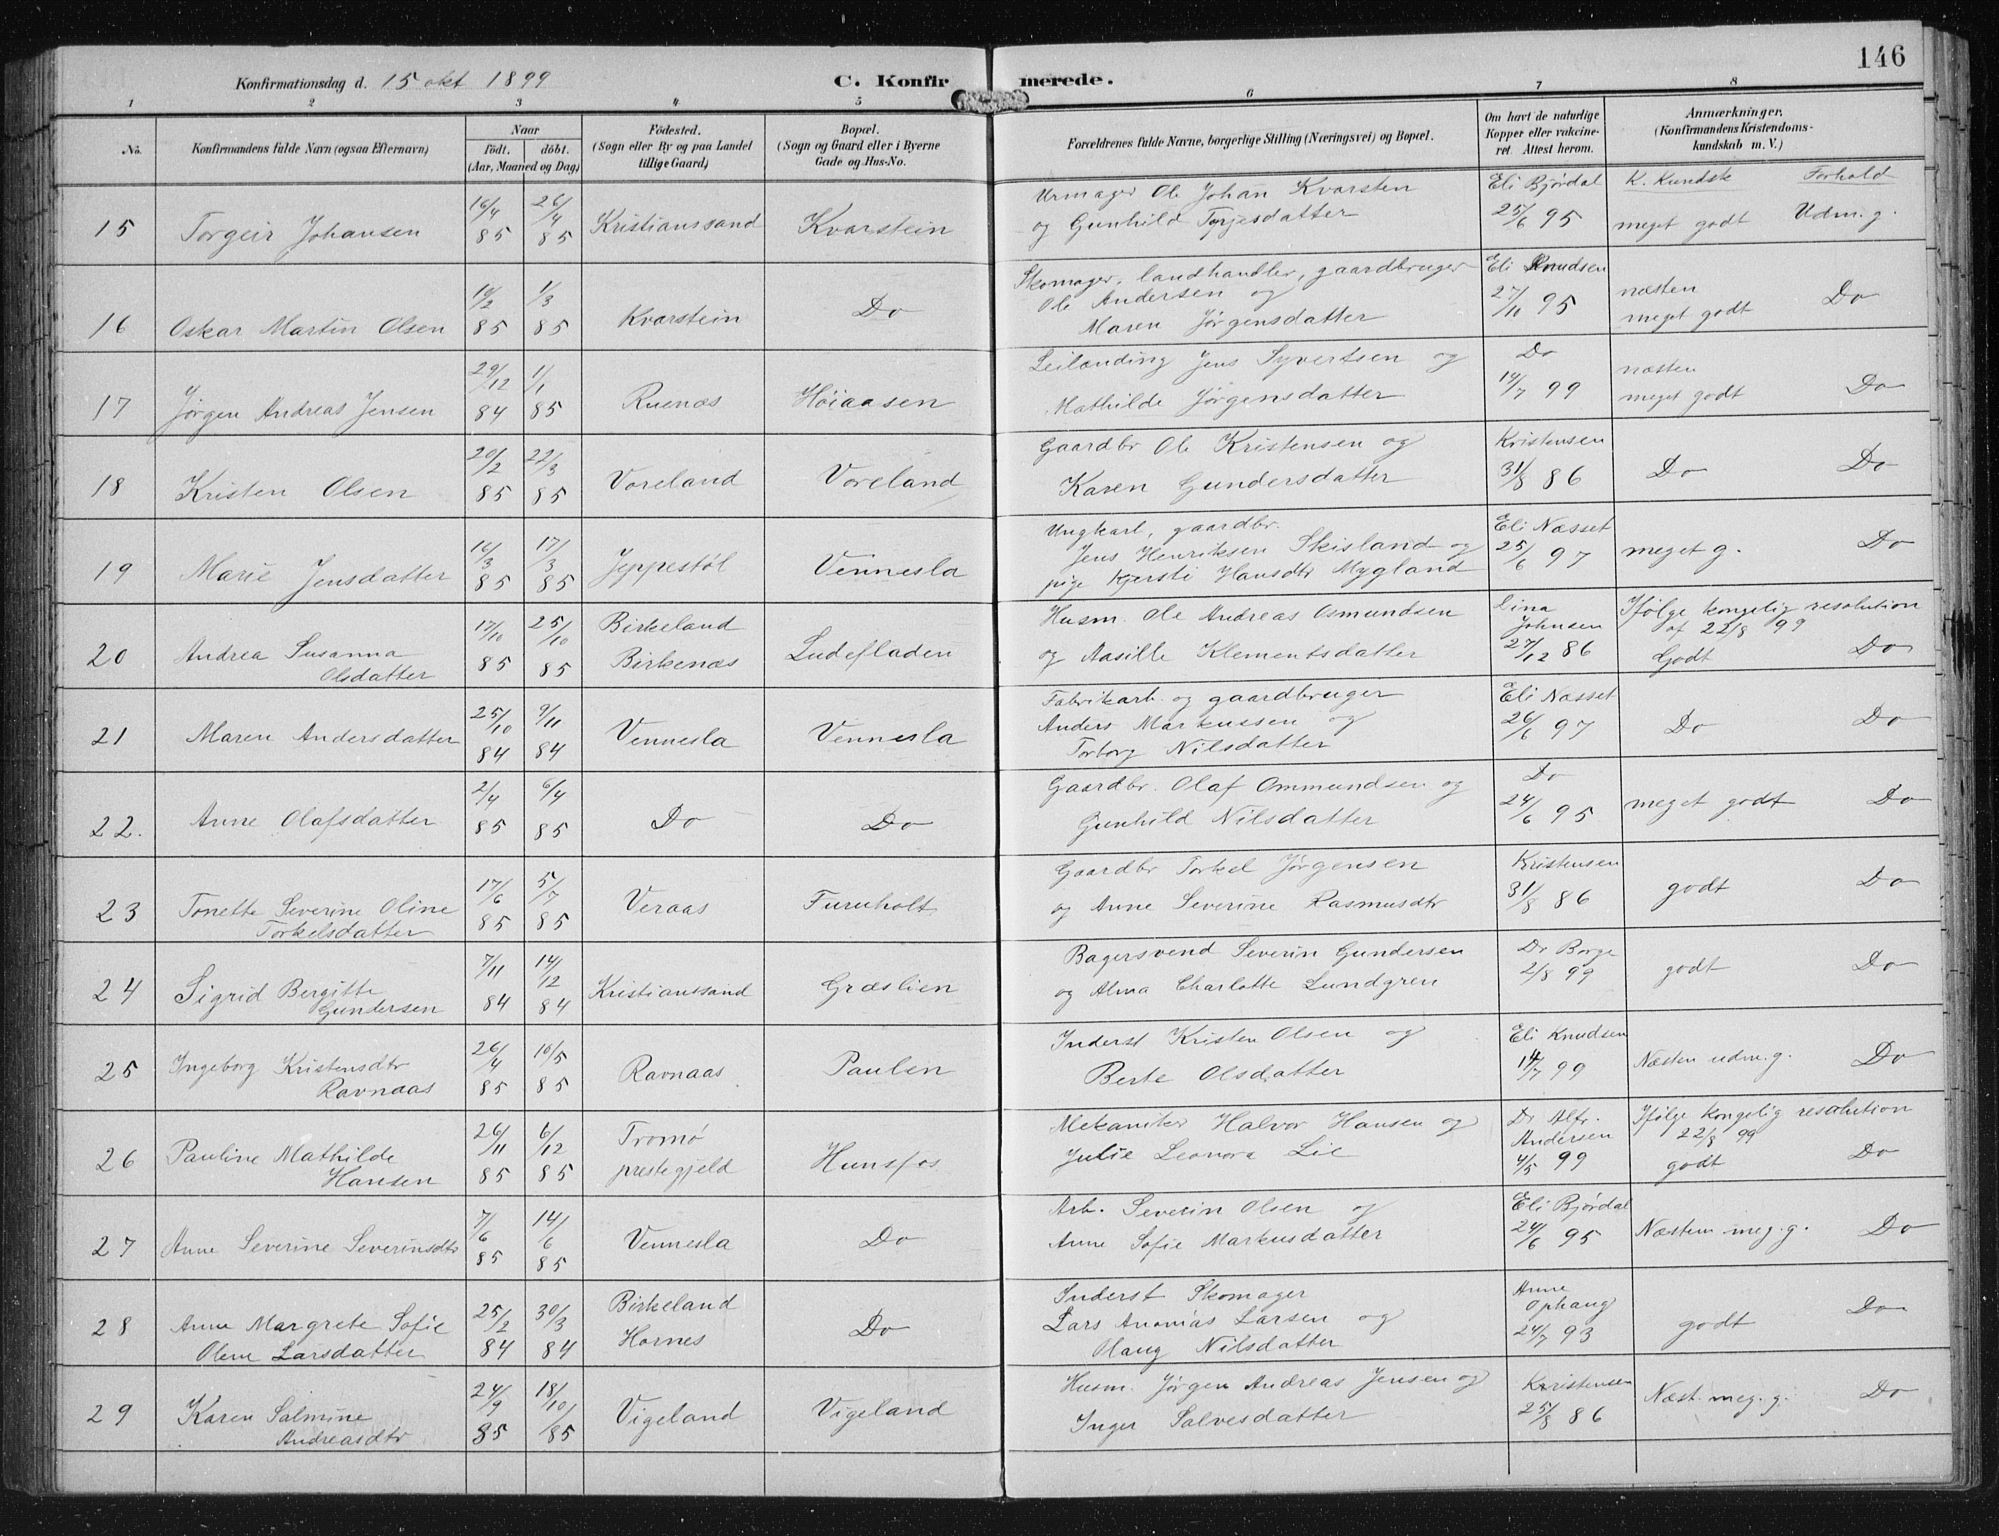 146
Konfirmationsdag d. 15 okt 1899
C. Konfirmerede.
1 2 3 4 5 6 7 8
No.
Konfirmandens fulde Navn (ogsaa Efternavn)
Naar
födt. döbt.
(Aar, Maaned og Dag)
Födested.
(Sogn eller By og paa Landet
tillige Gaard)
Bopæl.
(Sogn og Gaard eller i Byerne
Gade og Hus-No.
Forældrenes fulde Navne, borgerlige Stilling (Næringsvei) og Bopæl.
Om havt de naturlige
Kopper eller vakcine-
ret. Attest herom.
Anmærkninger.
(Konfirmandens Kristendoms-
kundskab m. V.)
K. Kundsk Forhold
15 Torgeir Johansen 16/4 85 26/4 85 Kristianssand Kvarstein
Urmager Ole Johan Kvarsten
og Gunhild Tarjesdatter
Eli Bjørdal 25/6 95 meget godt Udm. g.
16 Oskar Martin Olsen 10/2 85 1/3 85 Kvarstein Do
Skomager, landhandler, gaardbruger
Ole Andersen og
Maren Jørgensdatter
Eli Knudsen 27/11 95 næsten meget godt Do
17 Jørgen Andreas Jensen 29/12 84 1/1 85 Ruenæs Høiaasen
Leilænding Jens Syvertsen og
Mathilde Jørgensdatter
Do 14/7 99 næsten meget godt Do
18 Kristen Olsen 20/2 85 22/3 85 Voreland Voreland
Gaardbr Ole Kristensen og
Karen Gundersdatter
Kristensen 31/8 86 Do Do
19 Marie Jensdatter 16/3 85 17/3 85 Jeppestøl Vennesla
Ungkarl, gaardbr.
Jens Henriksen Skisland og
pige Kjersti Hansdtr Mygland
Eli Næsset 25/6 97 meget g. Do
20 Andrea Susanna
Olsdatter 17/10 85 25/10 85 Birkeland
Birkenæs Ludefladen
Husm. Ole Andreas Osmundsen
og Aasille Klementsdatter
Lina
Johnsen 27/12 86 Ifølge kongelig resolution
af 22/8 99
Godt Do
21 Maren Andersdatter 25/10 84 9/11 84 Vennesla Vennesla
Fabrikarb. og gaardbruger
Anders Markussen og
Torborg Nilsdatter
Eli Næsset 26/6 97 Do Do
22. Anne Olafsdatter 2/4 85 6/4 85 Do Do
Gaardbr. Olaf Ommundsen og
Gunhild Nilsdatter
Do 24/6 95 meget godt Do
23 Tonette Severine Oline
Torkelsdatter 17/6 85 5/7 85 Veraas Furuholt
Gaardbr Torkel Jørgensen
og Anne Severine Rasmusdtr
Kristensen 31/8 86 godt Do
24 Sigrid Bergitte
Gundersen 7/11 84 14/12 84 Kristianssand Græslien
Bagersvend Severin Gundersen
og Alma Charlotte Lundgren
Dr Borge 2/8 99 godt Do
25 Ingeborg Kristensdtr
Ravnaas 26/4 85 10/5 85 Ravnaas Paulen
Inderst Kristen Olsen og
Berte Olsdatter
Eli Knudsen 14/7 99 Næsten udm. g. Do
26 Pauline Mathilde
Hansen 26/11 85 6/12 85 Tromø
prestegjeld Hunsfos
Mekaniker Halvor Hansen og
Julie Leonora Lie
Dr Alfr.
Andersen 4/5 99 Ifølge kongelig resolution
22/8 99
godt Do
27 Anne Severine Severinsdtr 7/6 85 14/6 85 Vennesla Do
Arb. Severin Olsen og
Anne Sofie Markusdatter
Eli Bjørdal 24/6 95 Næsten meg. g. Do
28 Anne Margrete Sofie
Olene Larsdatter 25/2 84 30/3 84 Birkeland
Hornes Do
Inderst Skomager
Lars Lorsen og
Olaug Nilsdatter
Anne
Ophaug 24/7 93 godt Do
29 Karen Salmine
Andreasdtr 24/9 85 18/10 85 Vigeland Vigeland
Husm. Jørgen Andreas Jensen og
Inger Salvesdatter
Kristensen 25/8 86 Næst. meg. g. Do